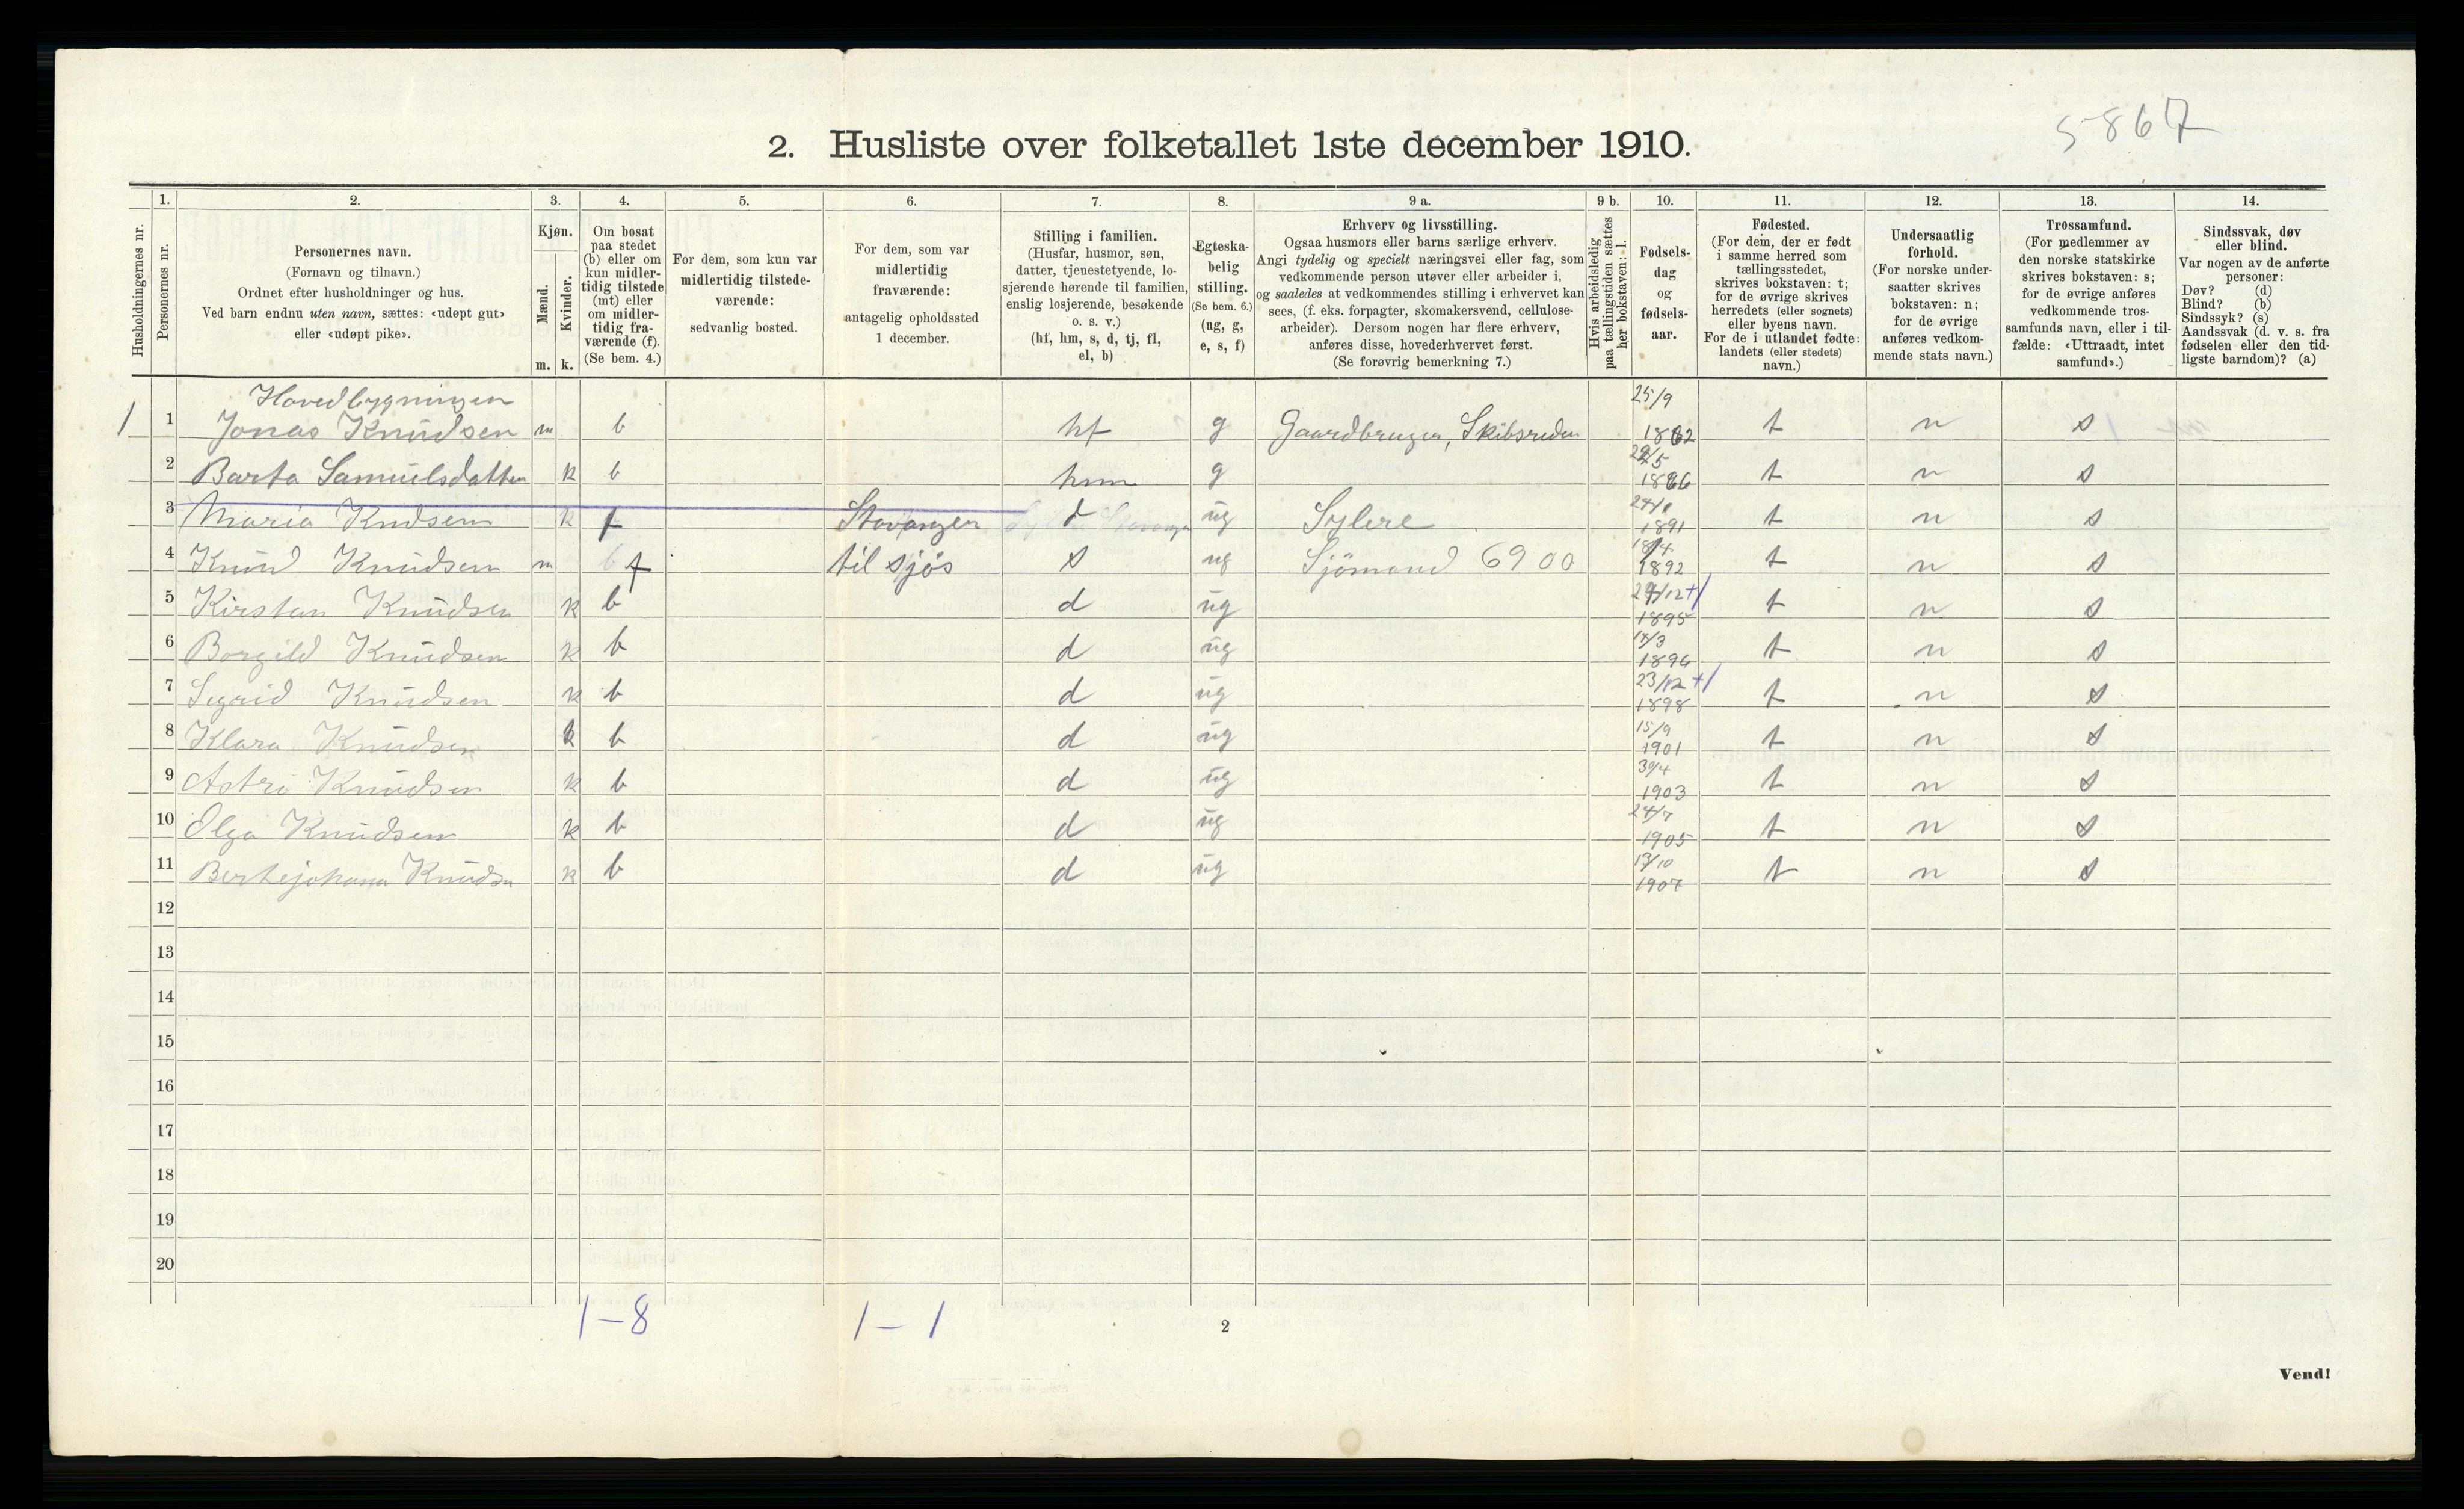 5867
2. Husliste over folketallet 1ste december 1910.
1. 2. 3. 4. 5. 6. 7. 8. 9 a. 9 b. 10. 11. 12. 13. 14.
Husholdningernes nr.
Personernes nr.
Personernes navn.
(Fornavn og tilnavn.)
Ordnet efter husholdninger og hus.
Ved barn endnu uten navn, sættes: «udøpt gut»
eller «udøpt pike».
Kjøn.
Mænd.
Kvinder.
m. k.
Om bosat
paa stedet
(b) eller om
kun midler-
tidig tilstede
(mt) eller
om midler-
tidig fra-
værende (f).
(Se bem. 4.)
For dem, som kun var
midlertidig tilstede-
værende:
sedvanlig bosted.
For dem, som var
midlertidig
fraværende:
antagelig opholdssted
1 december.
Stilling i familien.
(Husfar, husmor, søn,
datter, tjenestetyende, lo-
sjerende hørende til familien,
enslig losjerende, besøkende
o. s. v.)
(hf, hm, s, d, tj, fl,
el, b)
Egteska-
belig
stilling.
(Se bem. 6.)
(ug, g,
e, s, f)
Erhverv og livsstilling.
Ogsaa husmors eller barns særlige erhverv.
Angi tydelig og specielt næringsvei eller fag, som
vedkommende person utøver eller arbeider i,
og saaledes at vedkommendes stilling i erhvervet kan
sees, (f. eks. forpagter, skomakersvend, cellulose-
arbeider). Dersom nogen har flere erhverv,
anføres disse, hovederhvervet først.
(Se forøvrig bemerkning 7.)
Hvis arbeidsledig
paa tællingstiden sættes
her bokstaven: l.
Fødsels-
dag
og
fødsels-
aar.
Fødested.
(For dem, der er født
i samme herred som
tællingsstedet,
skrives bokstaven: t;
for de øvrige skrives
herredets (eller sognets)
eller byens navn.
For de i utlandet fødte:
landets (eller stedets)
navn.)
Undersaatlig
forhold.
(For norske under-
saatter skrives
bokstaven: n;
for de øvrige
anføres vedkom-
mende stats navn.)
Trossamfund.
(For medlemmer av
den norske statskirke
skrives bokstaven: s;
for de øvrige anføres
vedkommende tros-
samfunds navn, eller i til-
fælde: «Uttraadt, intet
samfund».)
Sindssvak, døv
eller blind.
Var nogen av de anførte
personer:
Døv? (d)
Blind? (b)
Sindssyk? (s)
Aandssvak (d. v. s. fra
fødselen eller den tid-
ligste barndom)? (a)
Hovedbygningen
1 1 Jonas Knudsen m b hf g Gaardbruger, Skibsreder 25/9 1862 t n s
2 Barta Samuelsdatter k b hm g 5 1866 t n s
3 Maria Kndsen k f Stavanger d ug Sylere 1891 t n s
4 Knud Knudsen m f til sjøs s ug Sjömand 6900 1892 t n s
5 Kirsten Knudsen k b d ug 29/12 +/ 1895 t n s
6 Borgild Knudsen k b d ug 14/3 1896 t n s
7 Sigrid Knudsen k b d ug 23/12 +/ 1898 t n s
8 Klara Knudsen k b d ug 15/9 1901 t n s
9 Astri Knudsen k b d ug 30/4 1903 t n s
10 Olga Knudsen k b d ug 24/7 1905 t n s
11 Bertejohana Knudsn k b d ug 13/10 1907 t n s
12
13
14
15
16
17
18
19
20
1-8 1-1
2
Vend!